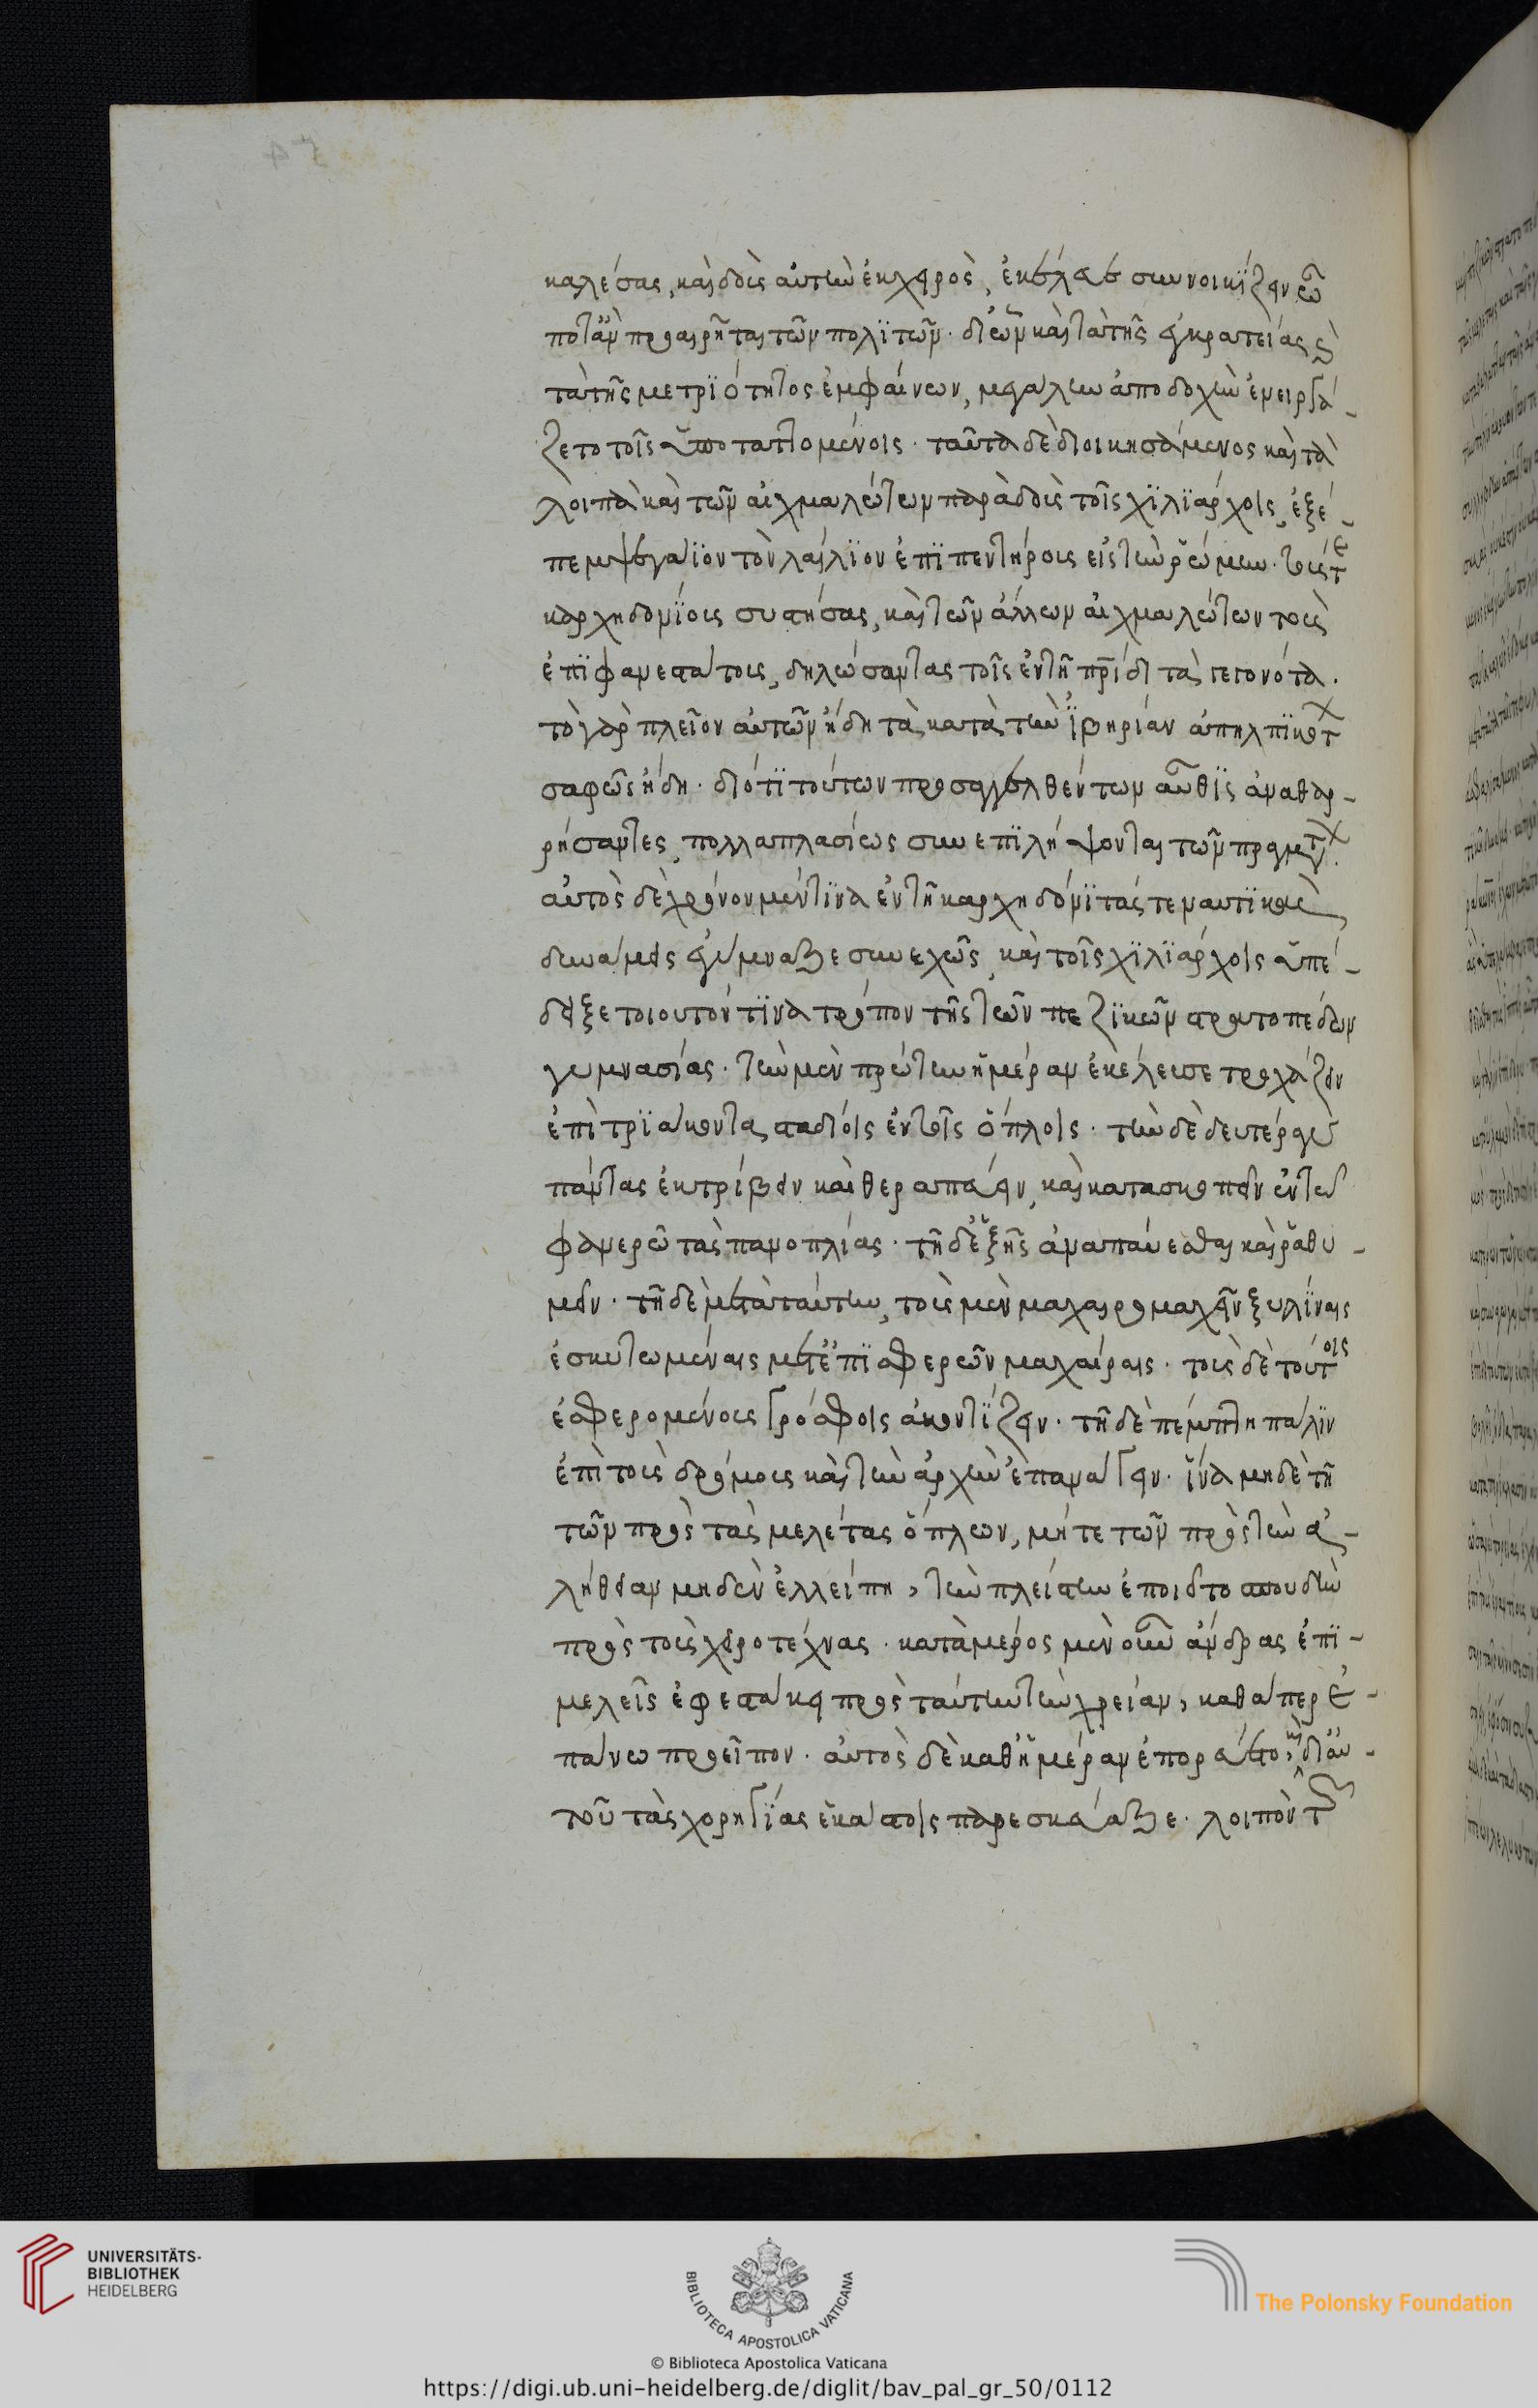 καλέσας, καὶ δοὺς αὐτὴν ἐκ χειρὸς, ἐκέλευε συνοικίζειν ᾧ
ποτ' ἂν προαιρῆται τῶν πολιτῶν. δι' ὧν καὶ τὰ τῆς ἐγκρατείας καὶ
τὰ τῆς μετριότητος ἐμφαίνων, μεγάλην ἀποδοχὴν ἐνειργά-
ζετο τοῖς ὑποταττομένοις. ταῦτα δὲ διοικησάμενος καὶ τὰ
λοιπὰ καὶ τῶν αἰχμαλώτων παραδοὺς τοῖς χιλιάρχοις, ἐξέ-
πεμψε γάϊον τὸν λαίλιον ἐπὶ πεντήρους εἰς τὴν ῥώμην. τούς τε
καρχηδονίους συστήσας, καὶ τῶν ἄλλων αἰχμαλώτων τοὺς
ἐπιφανεστάτους, δηλώσαντας τοῖς ἐν τῇ πρίδι τὰ γεγονότα.
τὸ γὰρ πλεῖον αὐτῶν ἤδη τὰ κατὰ τὴν ἰβηρίαν ἀπηλπικότ
σαφῶς ἤδη. διότι τούτων προσαγγελθέντων αὖθις ἀναθαρ-
ρήσαντες, πολλαπλασίως συνεπιλήψονται τῶν πραγμάτ
αὐτὸς δὲ χρόνον μέν τινα ἐν τῇ καρχηδόνι τάς τε ναυτικὰς
δυνάμεις ἐγύμναζε συνεχῶς, καὶ τοῖς χιλιάρχοις ὑπέ-
δειξε τοιουτόν τινα τρόπον τῆς τῶν πεζικῶν στρατοπέδων
γυμνασίας. τὴν μὲν πρώτην ἡμέραν ἐκέλευσε τροχάζειν
ἐπὶ τριάκοντα σταδίοις ἐν τοῖς ὅπλοις. τὴν δὲ δευτέραν
πάντας ἐκτρίβειν καὶ θεραπεύειν, καὶ κατασκοπεῖν ἐν τῷ
φανερῷ τὰς πανοπλίας. τῇ δ' ἑξῆς ἀναπαύεσθαι καὶ ῥαθυ-
μεῖν. τῇ δὲ μετὰ ταύτην, τοὺς μὲν μαχαιρομαχεῖν ξυλίναις
ἐσκυτωμέναις μετ' ἐπισφερῶν μαχαίραις. τοὺς δὲ τούτοις
ἐσφερομένοις γρόσφοις ἀκοντίζειν. τῇ δὲ πέμπτῃ πάλιν
ἐπὶ τοὺς δρόμους καὶ τὴν ἀρχὴν ἐπανάγειν. ἵνα μηδὲ τῇ
τῶν πρὸς τὰς μελέτας ὅπλων, μήτε τῶν πρὸς τὴν ἀ-
λήθειαν μηδὲν ἐλλείπῃ, τὴν πλείστην ἐποιεῖτο σπουδὴν
πρὸς τοὺς χειροτέχνας. κατὰ μέρος μὲν οὖν ἄνδρας ἐπι-
μελεῖς ἐφεστάκει πρὸς ταύτην τὴν χρείαν, καθάπερ ἐ-
πάνω προεῖπον. αὐτὸς δὲ καθ' ἡμέραν ἐπορεύετο, καὶ δι' αὑ-
τοῦ τὰς χορηγίας ἑκάστοις παρεσκεύαζε. λοιπὸν τῶν
UNIVERSITÄTS-
BIBLIOTHEK
HEIDELBERG
BIBLIOTECA APOSTOLICA VATICANA
The Polonsky Foundation
© Biblioteca Apostolica Vaticana
https://digi.ub.uni-heidelberg.de/diglit/bav_pal_gr_50/0112